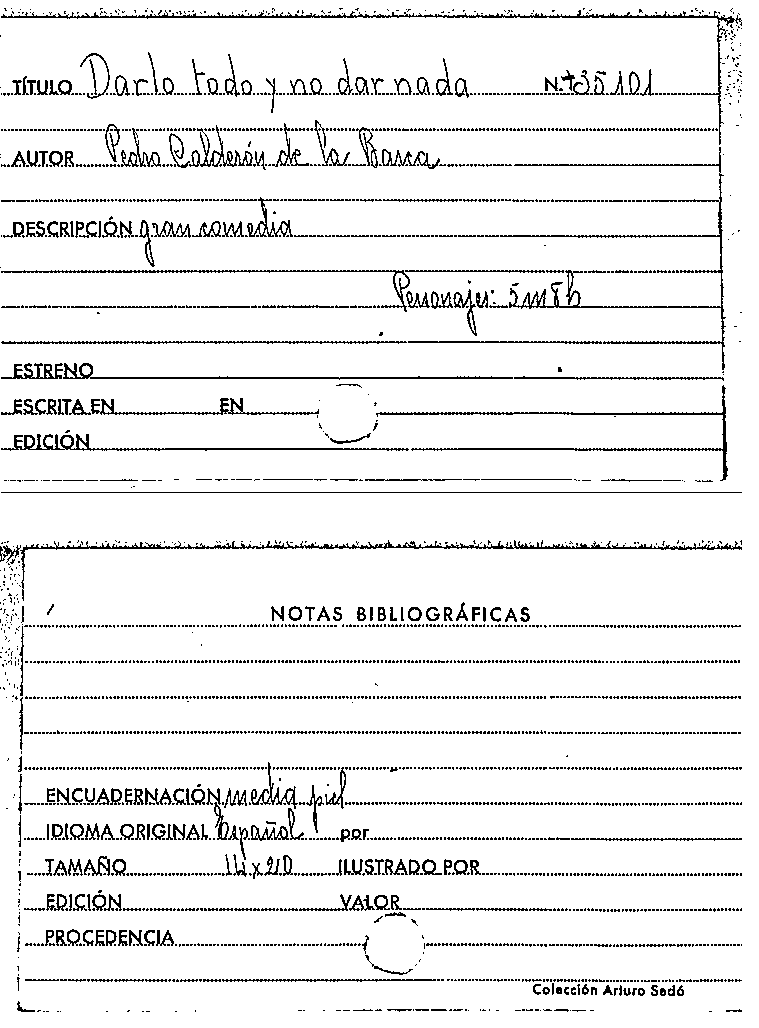 TÍTULO Darlo todo y no dar nada N.º 35101
AUTOR Pedro Calderón de la Barca
DESCRIPCIÓN gran comedia
Personajes: 5m 8h
ESTRENO
ESCRITA EN EN
EDICIÓN
NOTAS BIBLIOGRÁFICAS
ENCUADERNACIÓN media piel
IDIOMA ORIGINAL Español por
TAMAÑO 14x20 ILUSTRADO POR
EDICIÓN VALOR
PROCEDENCIA
Colección Arturo Sedó